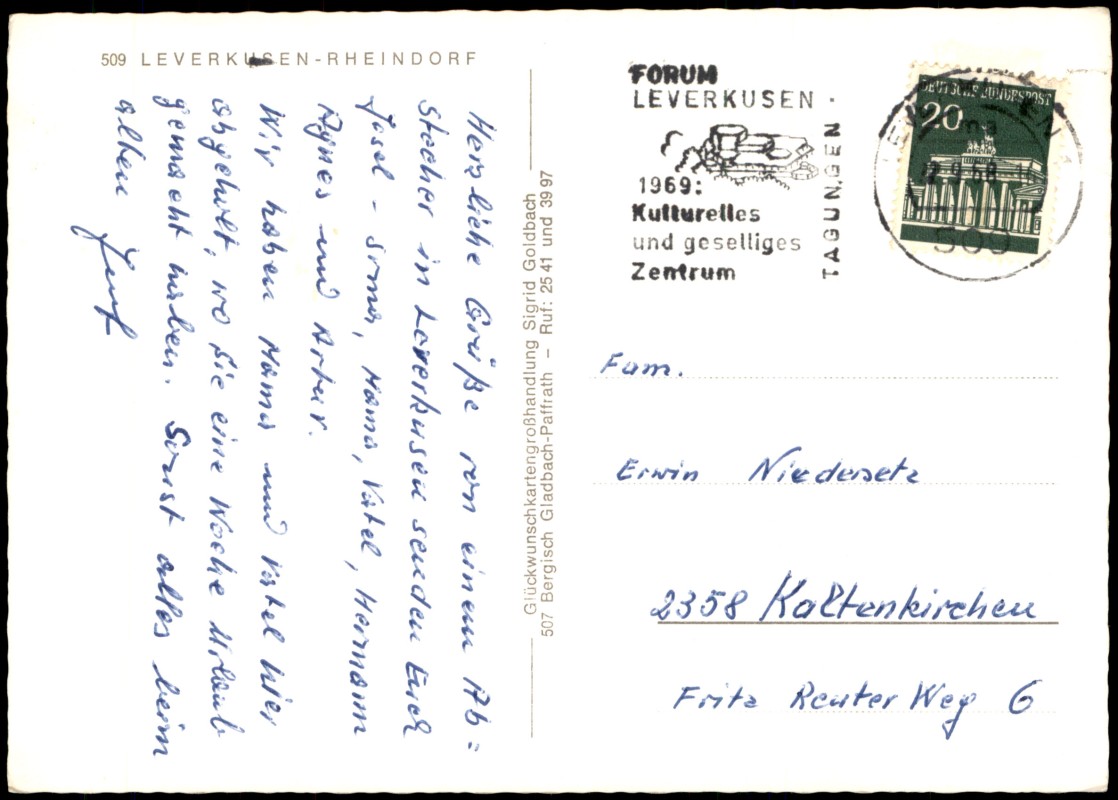 509 LEVERKUSEN-RHEINDORF
Herzliche Grüße von einem Ab=
stecher in Leverkusen senden Euch
Josel - Irma, Mama, Vatel, Hermann
Agnes und Artur.
Wir haben Mama und Vatel hier
abgeholt, wo sie eine Woche Urlaub
gemacht haben. Sonst alles beim
alten
Glückwunschkartengroßhandlung Sigrid Goldbach
507 Bergisch Gladbach-Paffrath – Ruf: 25 41 und 39 97
FORUM
LEVERKUSEN ·
1969:
Kulturelles
und geselliges
Zentrum
TAGUNGEN
DEUTSCHE BUNDESPOST
20
LEVERKUSEN 1
509
Fam.
Erwin Niedersetz
2358 Kaltenkirchen
Fritz Reuter Weg 6